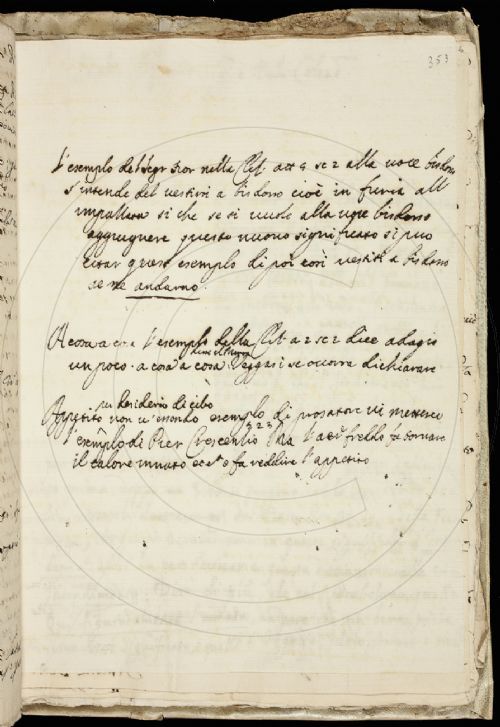 353
L'esempio del Segr Fior nella Clit att 4 sc 2 alla uoce bisdosso
s'intende del vestirsi a bisdosso cioè in furia all
impazzata si che se si uuole alla uoce bisdosso
aggiugnere questo nuouo significato si puo
citar questo esempio di poi così vestiti a bisdosso
se ne andarno.
A cosa a cosa l'esempio della Clit a 2 sc 2 dice adagio
un poco a cosa a cosa Veggasi se occorre dichiarare
per desiderio di cibo
Appetito non u'essendo esempio di prosatore ui metterei
l'esempio di Pier Crescenzio 3 22 3 Ma l'aer freddo fa tornare
il calore innato ec e fa reddire l'appetito